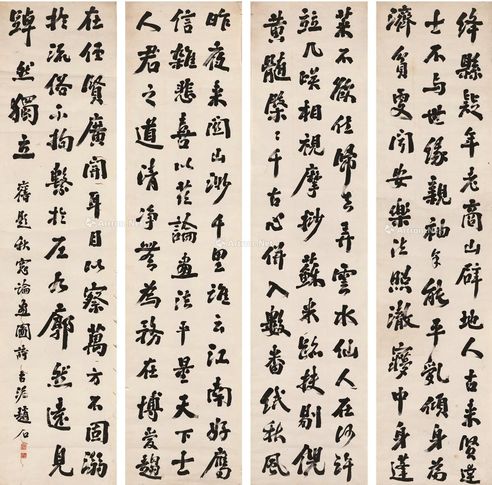 绛縣疑年老商山辟地人古来賢達
士不与世缘親袖手能平亂傾身為
濟貧更闻安樂法照澈寤中身蓬
莱不欲住歸去弄雲水仙人在何許
竝几咲相視摩抄蘇米跡抉剔倪
黄髓槃〻千古心併入數番纸秋風
昨夜来関山渺千里誰云江南好舊
信雜悲喜以茲論畫法平量天下士
人君之道清净無為務在博愛趨
在任賢廣開耳目以察萬方不固溺
於流俗不拘繫於左右廓然遠見
踔然獨立 舊題秋窓論畫圖詩 古泥趙石